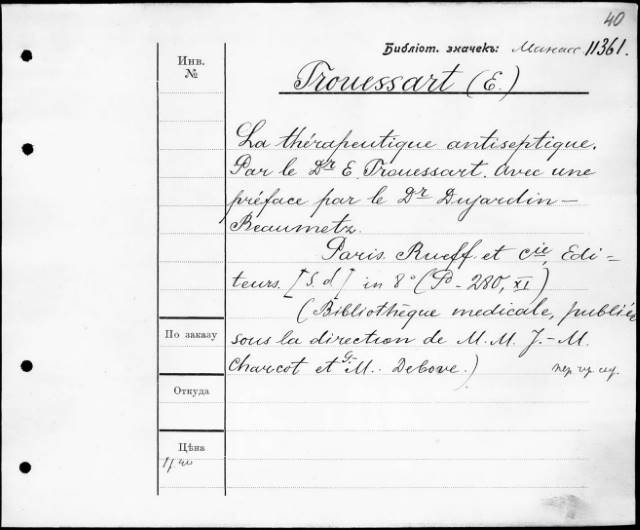 40
Библіот. значекъ: Манасс 11361.
Инв.
№
Trouessart (E.)
La thérapeutique antiseptique.
Par le Dr E. Trouessart. Avec une
préface par le Dr Dujardin-
Beaumetz.
Paris. Rueff. et Cie, Edi=
teurs. [S. d.] in 8° (P - 280, XI)
(Bibliothèque medicale, publiée
По заказу
sous la direction de M. M. J.-M.
Charcot et G.-M. Debove.)
Откуда
Цѣна